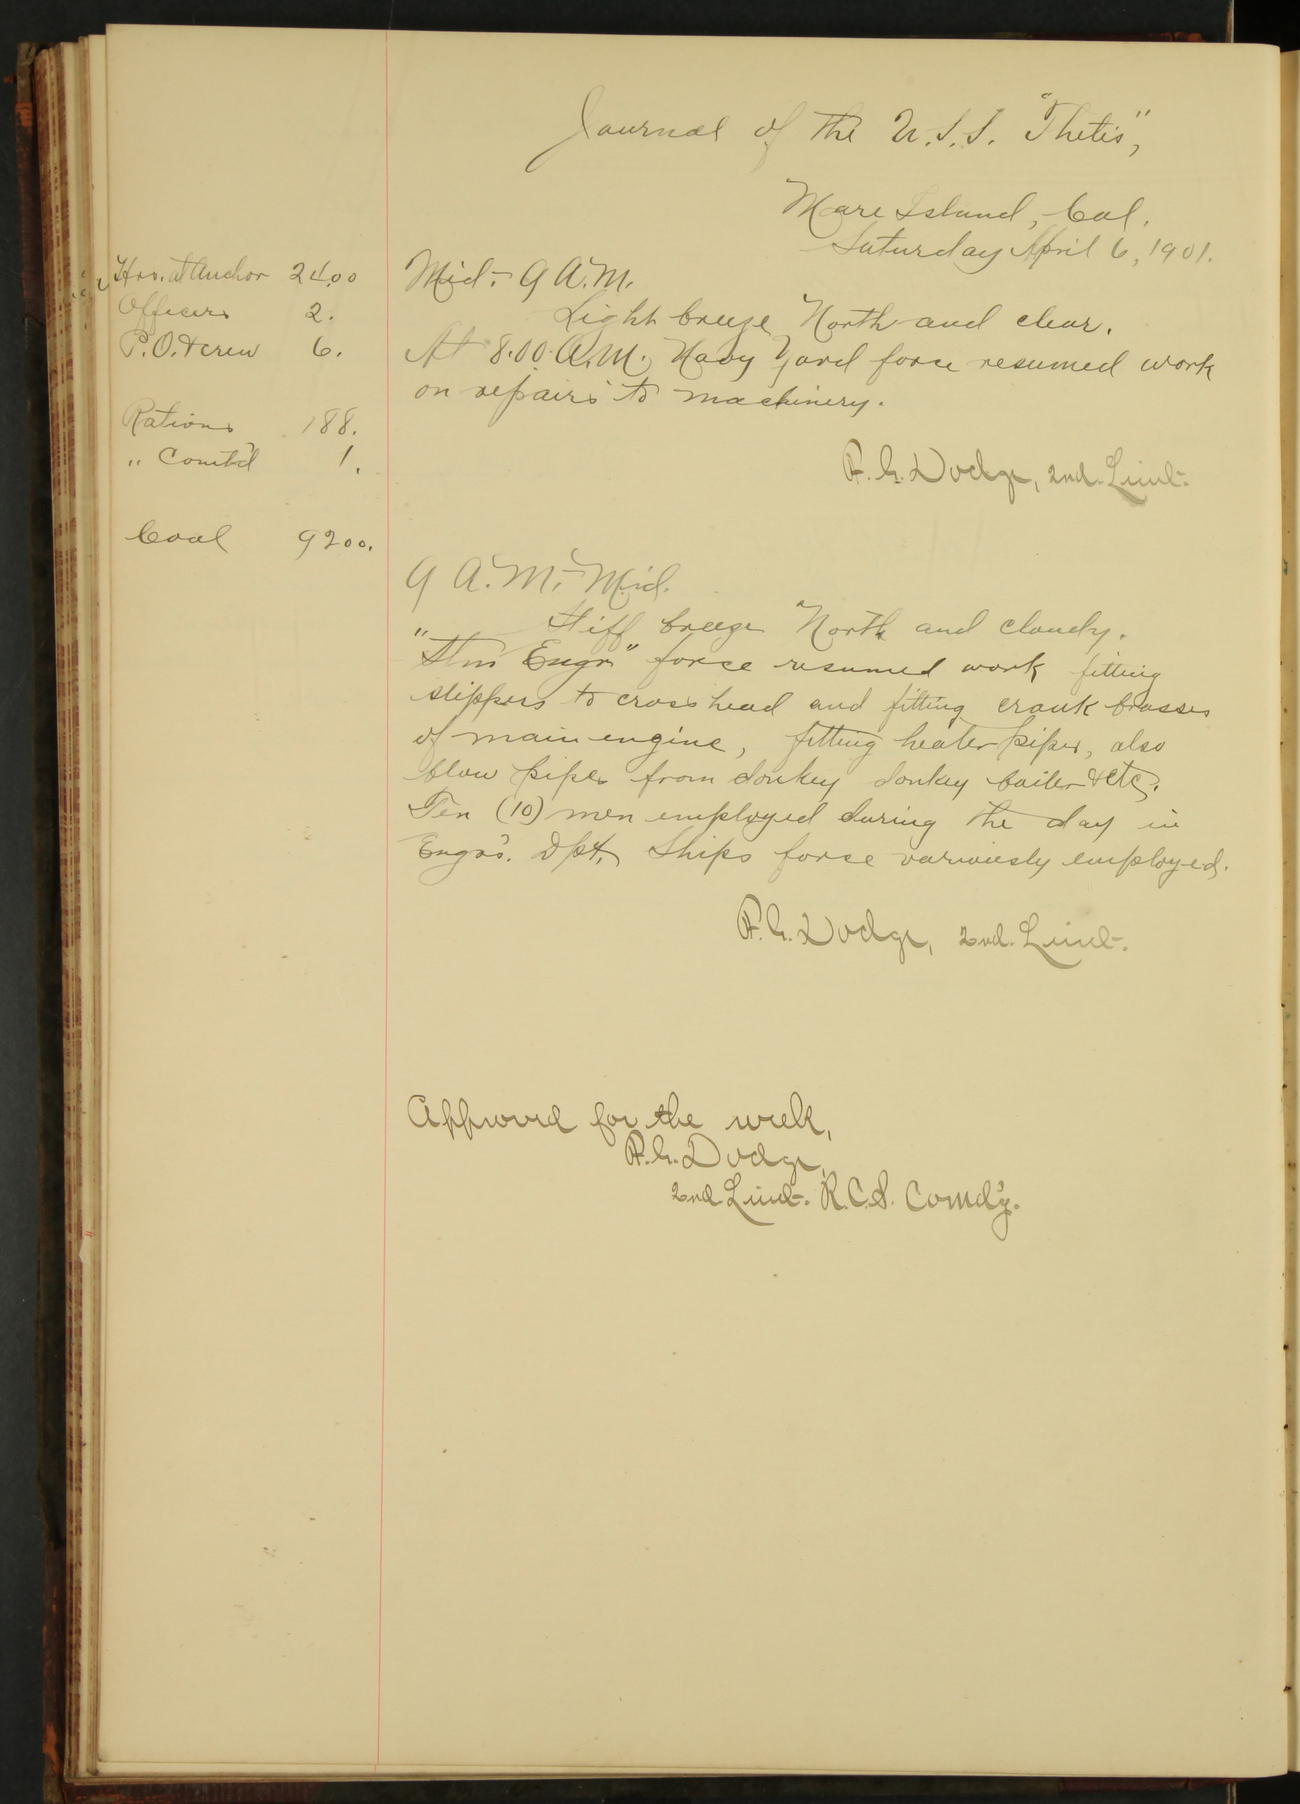 Journal of the U.S.S. "Thetis",
Mare Island, Cal.
Saturday April 6, 1901.
Hrs. at Anchor 24.00
Officers 2.
P.O. & crew 6.
Rations 188.
" Comt'd 1.
Coal 9200.
Mid.- 9 A.M.
Light breeze North and clear.
At 8.00 A.M. Navy Yard force resumed work
on repairs to machinery.
F. G. Dodge, 2nd. Lieut.
9 A.M.- Mid.
Stiff breeze North and cloudy.
"Stm Engr" force resumed work fitting
slippers to cross head and fitting crank brasses
of main engine, fitting heater pipes, also
blow pipes from donkey donkey boiler & etc.
Ten (10) men employed during the day in
Engr's. Dpt. Ships force variously employed.
F. G. Dodge, 2nd. Lieut.
Approved for the week,
F. G. Dodge,
2nd. Lieut. R.C.S. Comd'g.